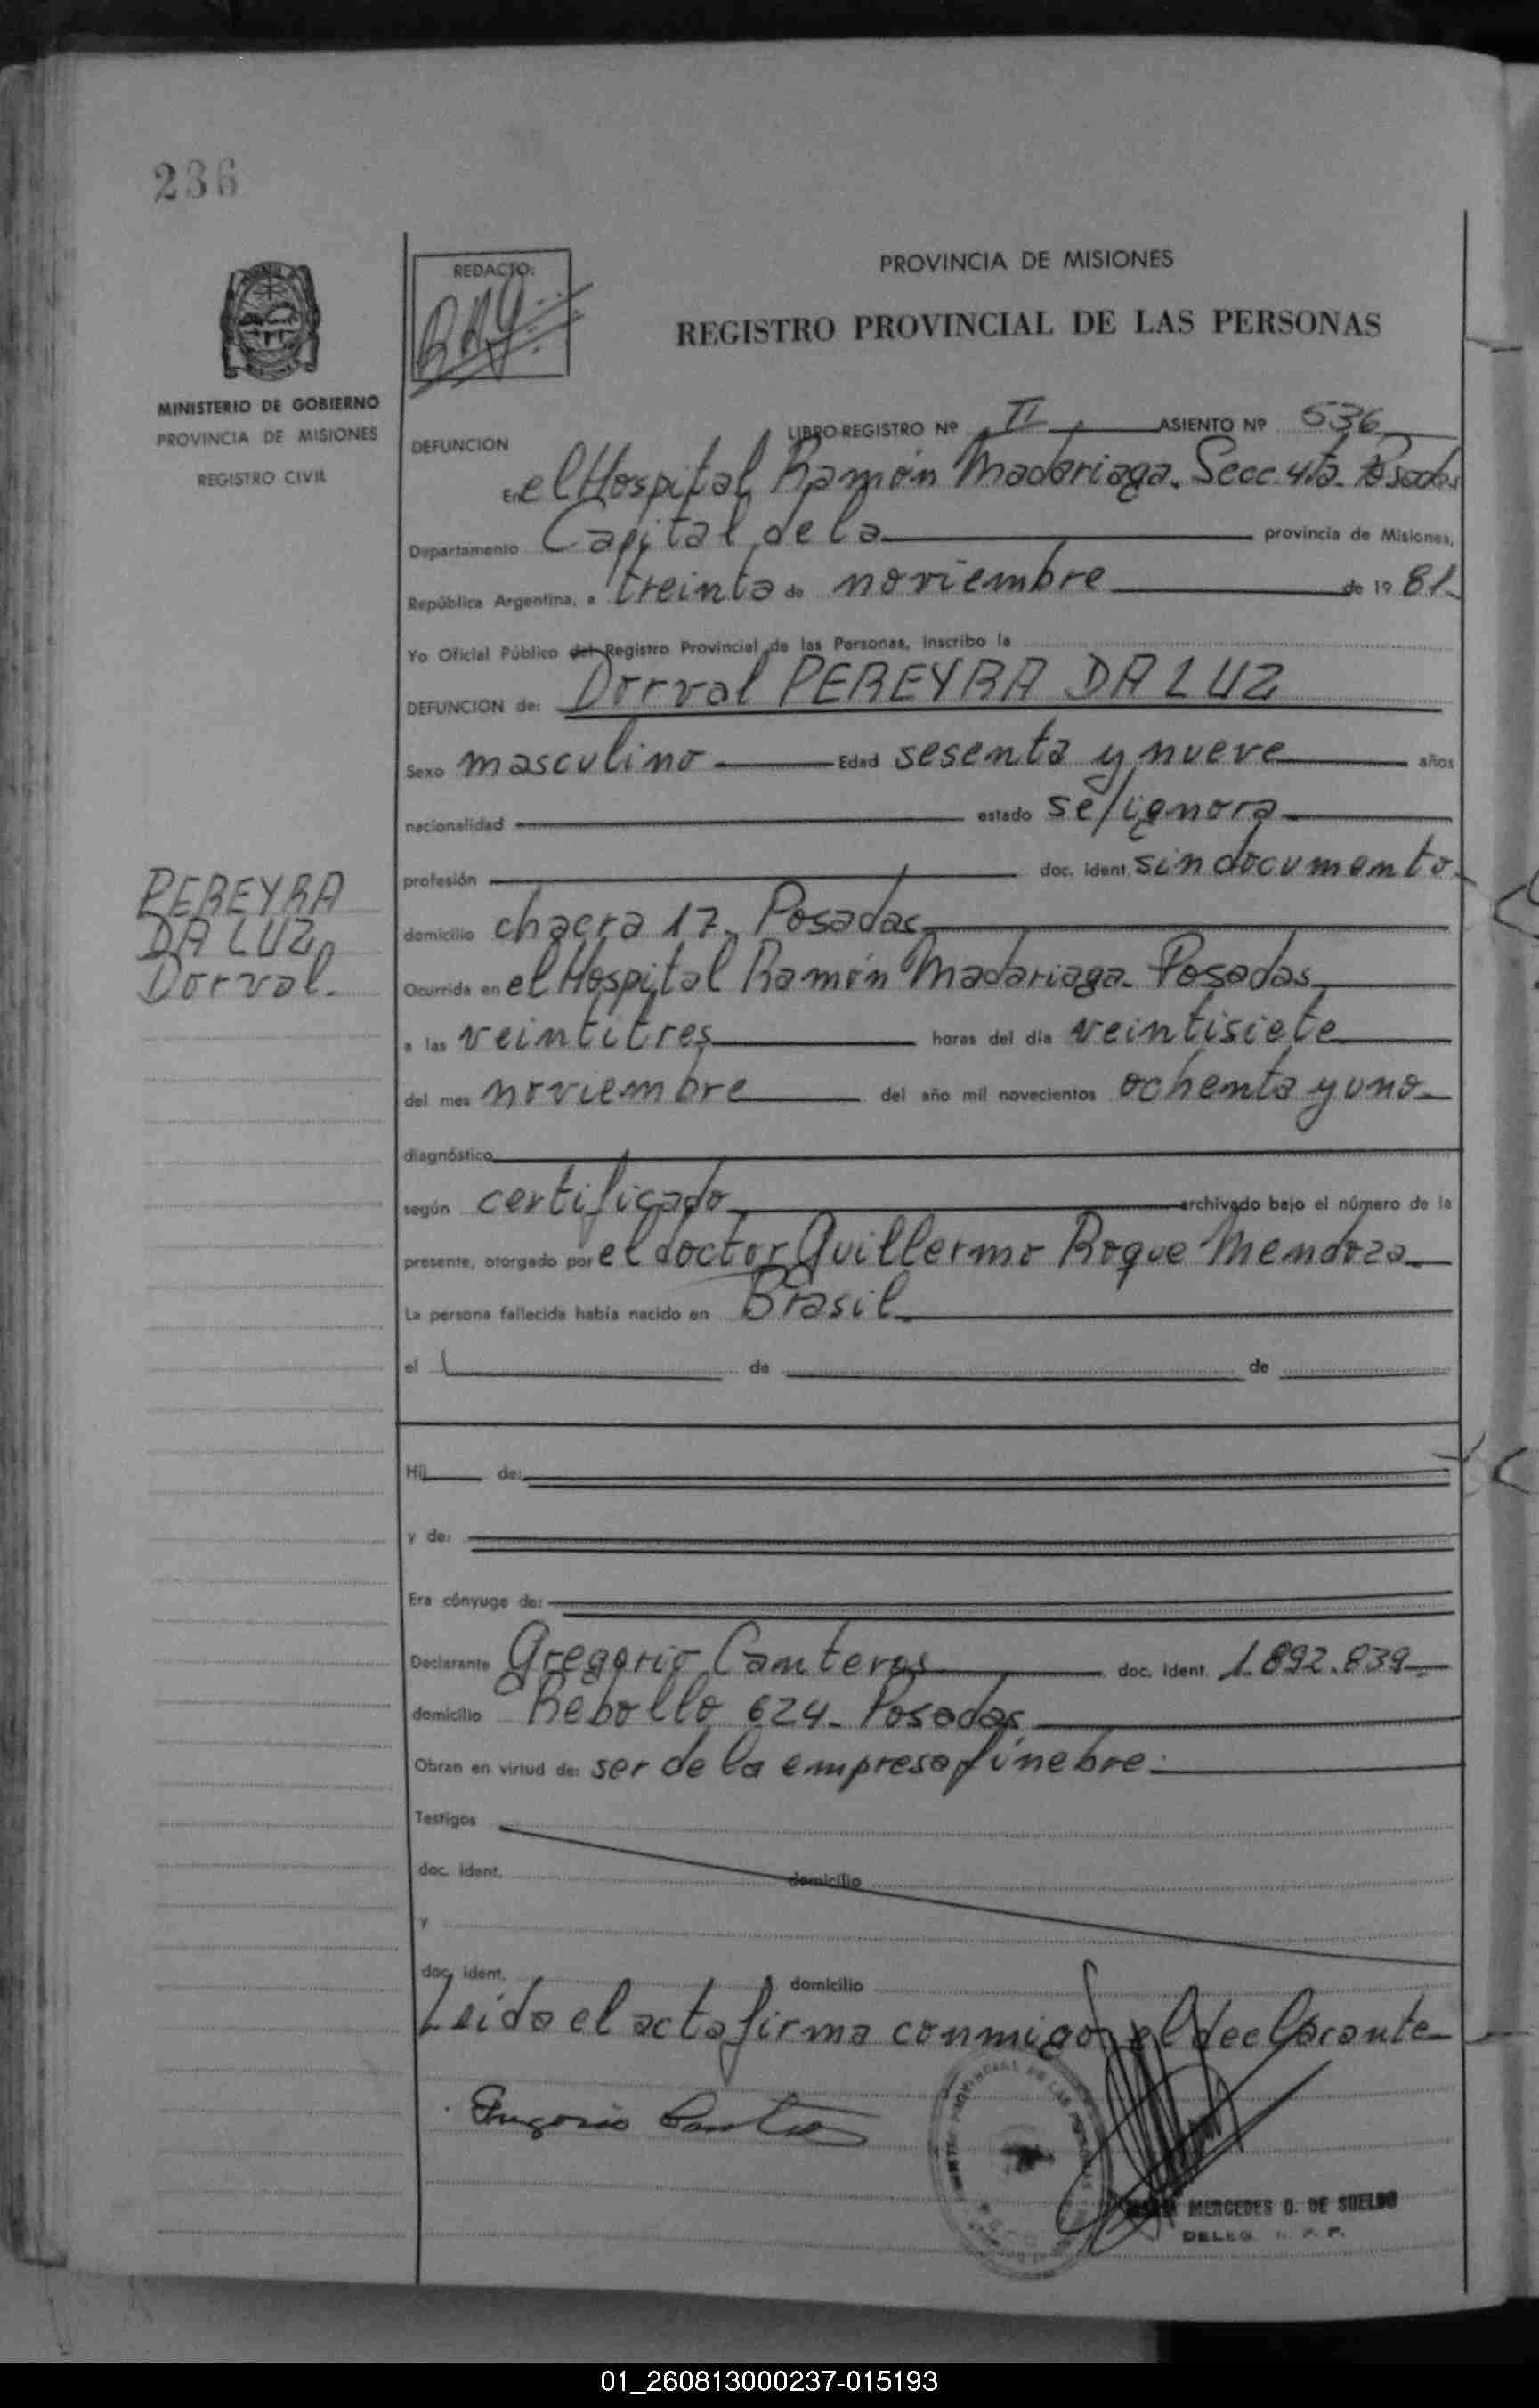 236
REDACTO:
PROVINCIA DE MISIONES
REGISTRO PROVINCIAL DE LAS PERSONAS
MINISTERIO DE GOBIERNO
PROVINCIA DE MISIONES
REGISTRO CIVIL
LIBRO-REGISTRO Nº II ASIENTO Nº 536
DEFUNCION
En el Hospital Ramón Madariaga. Secc. 4ta. Posadas
Departamento Capital de la provincia de Misiones,
República Argentina, a treinta de noviembre de 19 81
Yo Oficial Público del Registro Provincial de las Personas, inscribo la
DEFUNCION de: Dorval PEREYRA DA LUZ
Sexo masculino Edad sesenta y nueve años
nacionalidad estado se/ignora
profesión doc. ident. sin documento
PEREYRA
DA LUZ,
Dorval.
domicilio chacra 17. Posadas
Ocurrida en el Hospital Ramón Madariaga. Posadas
a las veintitres horas del día veintisiete
del mes noviembre del año mil novecientos ochenta y uno
diagnóstico
según certificado archivado bajo el número de la
presente, otorgado por el doctor Guillermo Roque Mendoza
La persona fallecida había nacido en Brasil
el de de
Hij de:
y de:
Era cónyuge de:
Declarante Gregorio Canteros doc. ident. 1.892.839
domicilio Rebollo 624. Posadas
Obran en virtud de: ser de la empresa fúnebre.
Testigos
doc. ident. domicilio
y
doc. ident. domicilio
Leída el acta firma conmigo el declarante
MERCEDES O. DE SUELDO
DELEG.
01_260813000237-015193